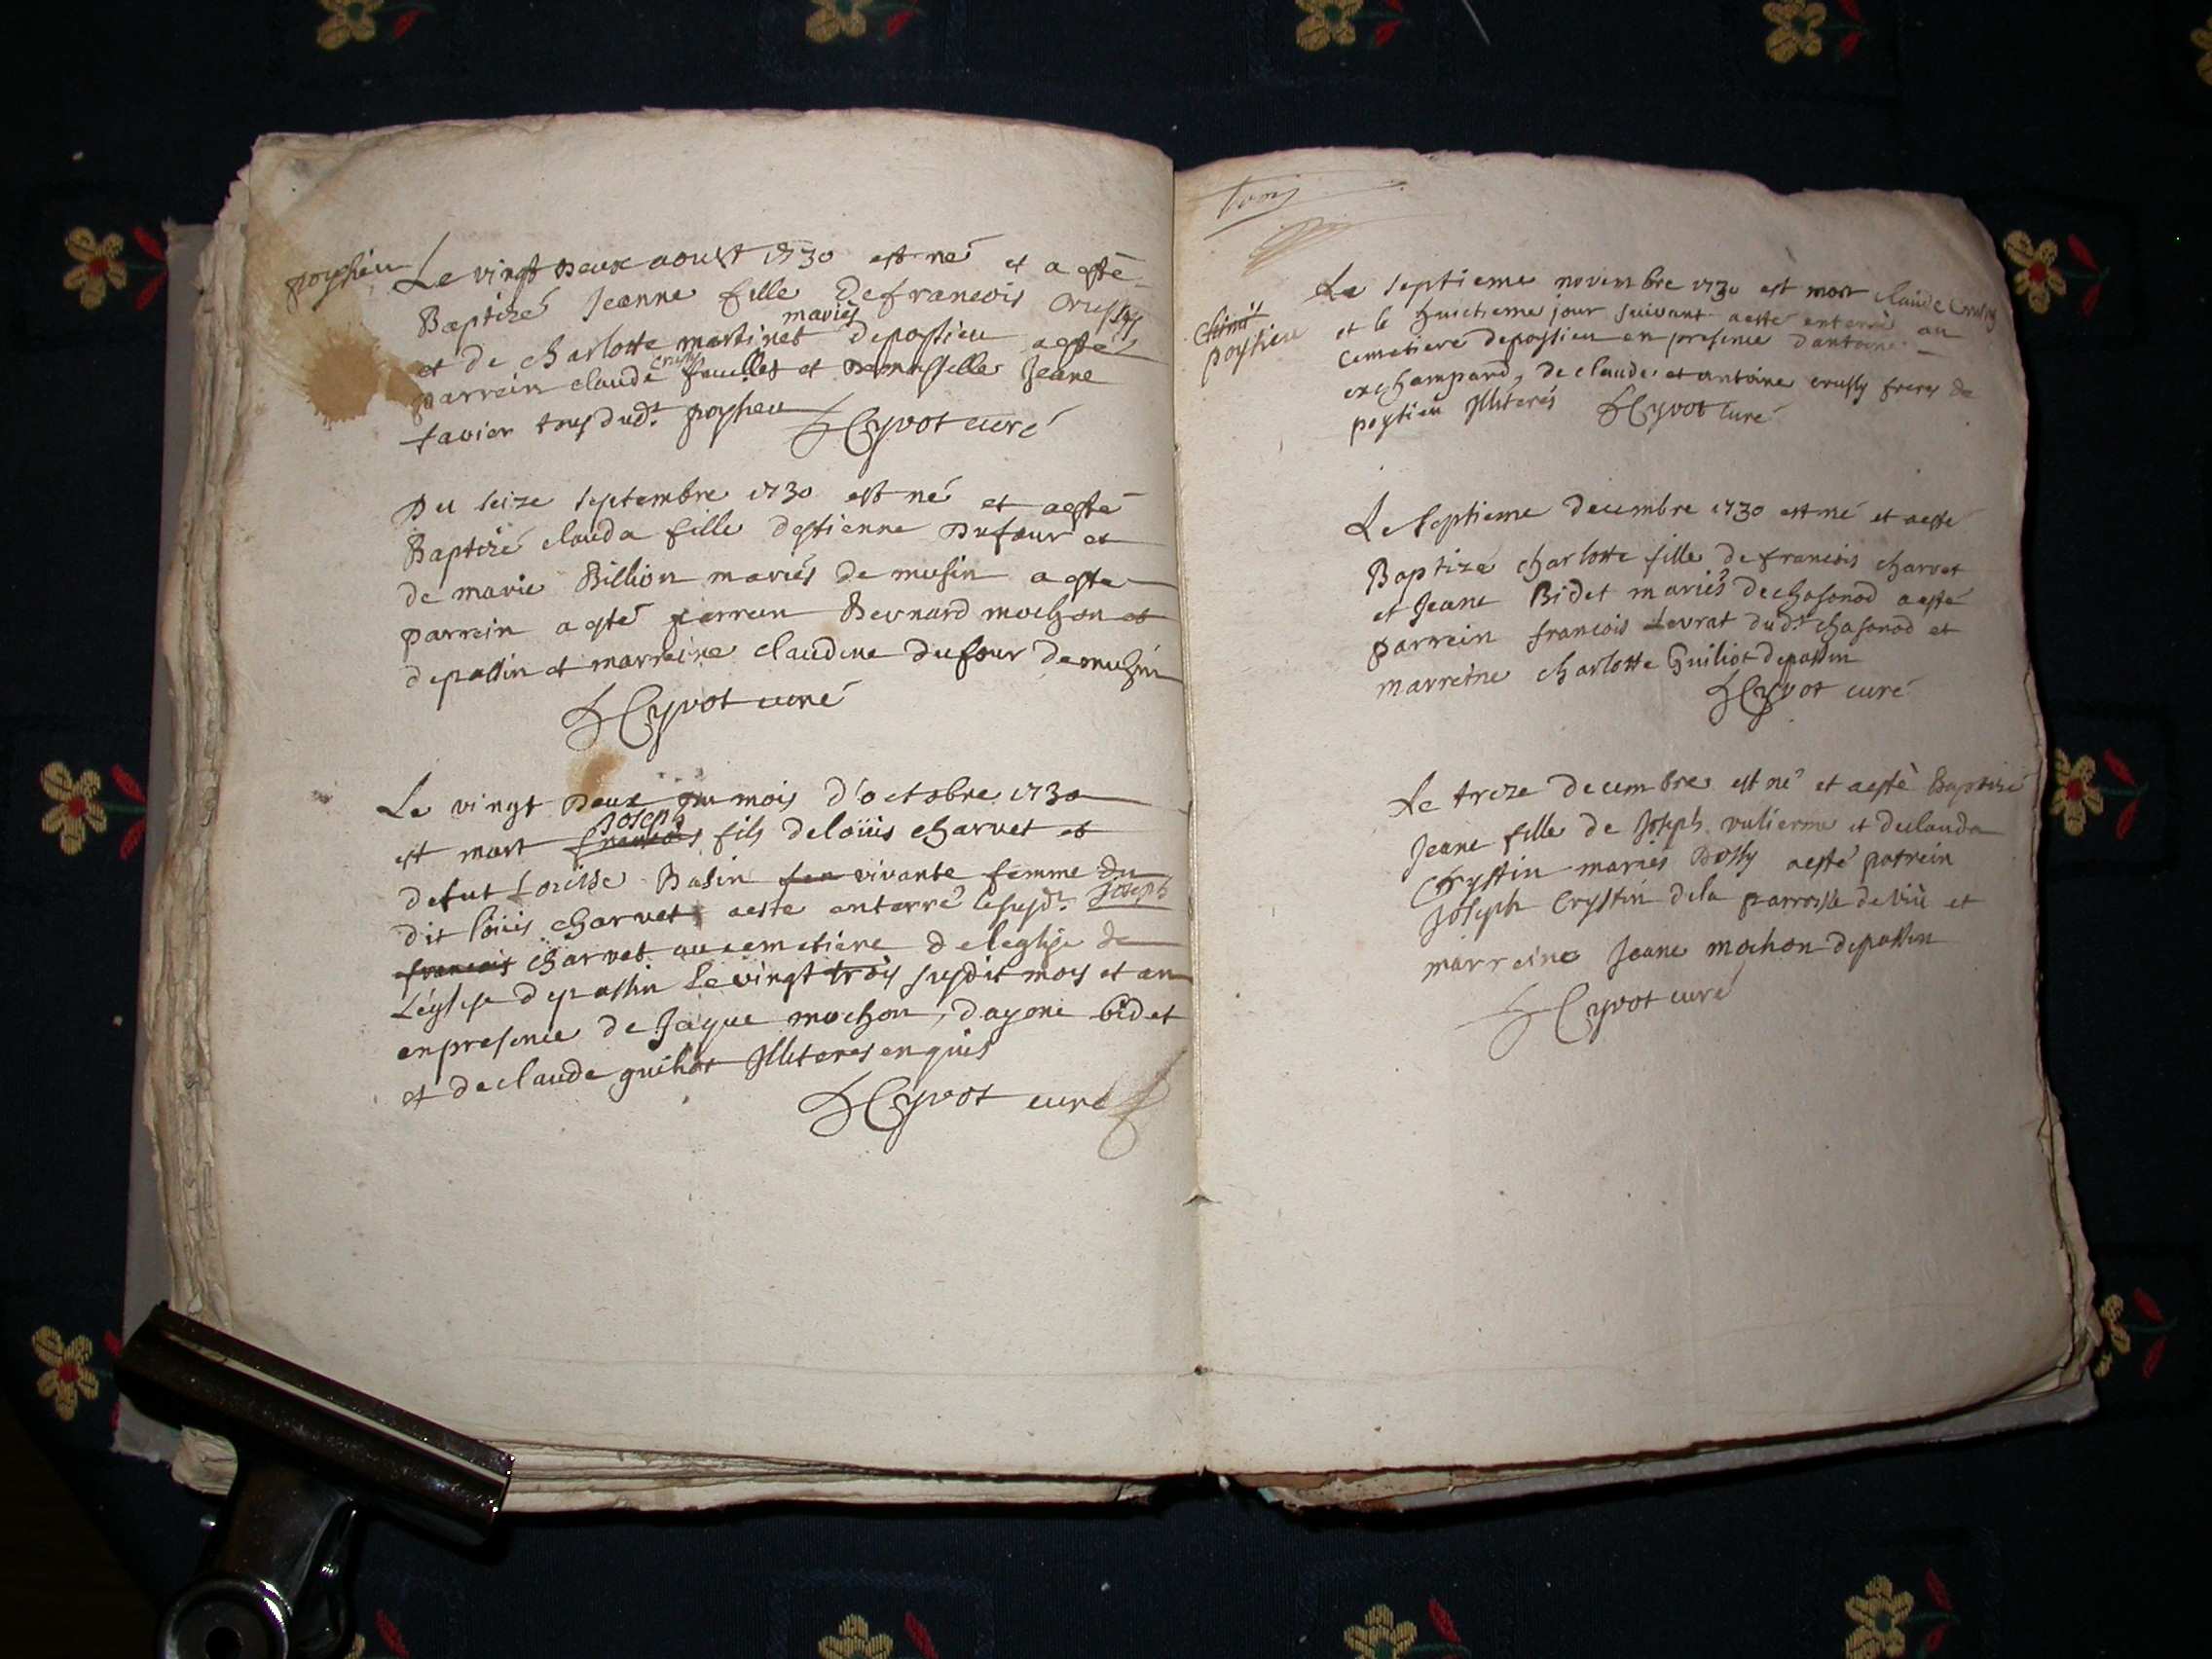 poysieu
Le vingt Deux aoust 1730 est né et a esté
Baptizé Jeanne fille de francois Crussy
mariés
et de charlotte martinet de poysieu a esté
crussy
parrein claude et Demoiselle Jeane
favier tous dud.t poysieu Cyvot curé
Du seize septembre 1730 est né et a esté
Baptizé clauda fille destienne Dufour et
de marie Billion mariés de musin a este
parrein a esté parrein Bernard mochon et
de passin et marreine claudine dufour de musin
Cyvot curé
Le vingt Deux du mois d'octobre 1730
Joseph
est mort francois fils de loüis charvet et
de fut Loüise Basin feu vivante femme du
dit loüis charvet a esté anterré le susd.t Joseph
francois charvet au cemetiere de leglise de
Léglise de passin Le vingt trois susdit mois et an
en presence de Jaque mochon, dayme bidet
et de claude guiliot Jlliteres enquis
Cyvot curé
poysieu
Le septieme novembre 1730 est mort claude Crussy
et le huictieme jour suivant a esté enterré au
cemetiere de poysieu en presence d'antoine
exchampard, de claude et antoine crussy freres de
poysieu Jlliterés Cyvot Curé
Le septieme decembre 1730 est né et a esté
Baptizé charlotte fille de francois charvet
et Jeane Bidet mariés de chasonod a esté
parrein francois Levrat dud.t chasonod et
marreine charlotte Guiliot de passin
Cyvot curé
Le treze decembre est né et a esté Baptisé
Jeane fille de Joseph vulierme et de clauda
Crystin mariés Dossy a esté parrein
Joseph Crystin de la parroisse de viü et
marreine Jeane mochon de passin
Cyvot curé